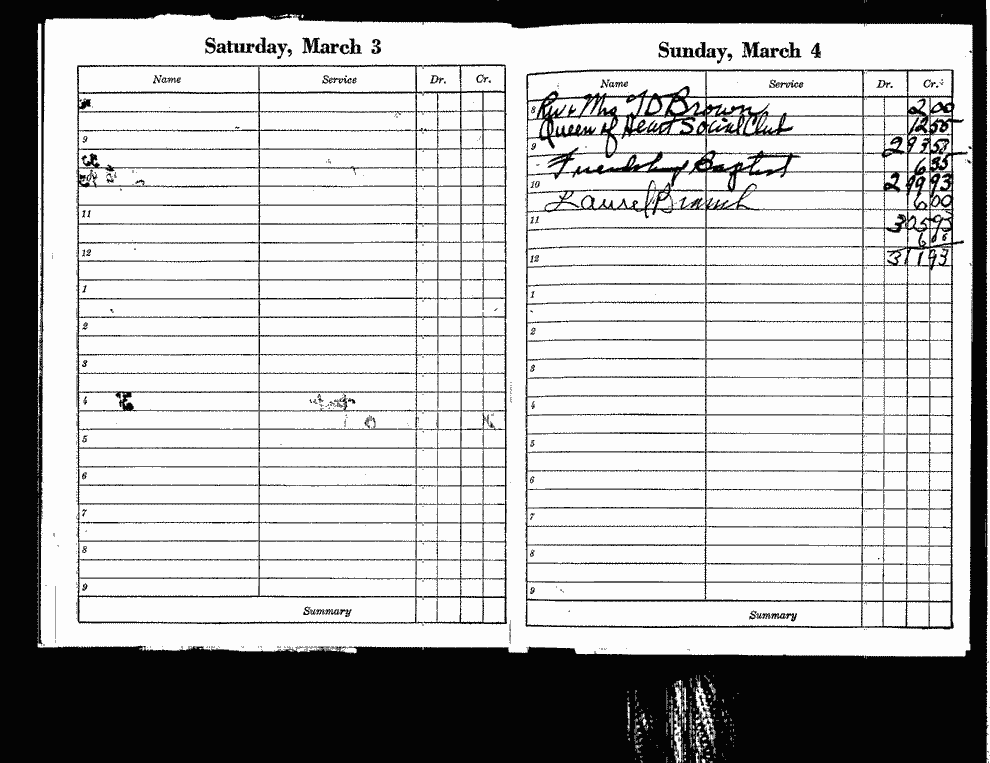 Saturday, March 3
Name Service Dr. Cr.
9
10
11
12
1
2
3
4
5
6
7
8
9
Summary
Sunday, March 4
Name Service Dr. Cr.
8 Rev & Mrs T D Brown 2 00
Queen of Heart Social Club 12 55
9 293 58
Friendship Baptist 6 35
10 299 93
Laurel Branch 6 00
11 305 93
6 00
12 311 93
1
2
3
4
5
6
7
8
9
Summary